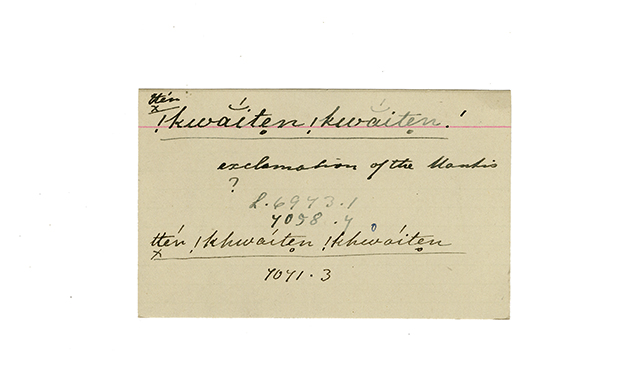 ttén
!kwăítẹn !kwăítẹn !
exclamation of the Mantis
?
L.6973.1
7058.7
ttén !khwáítẹn !khwáítẹn
7071.3